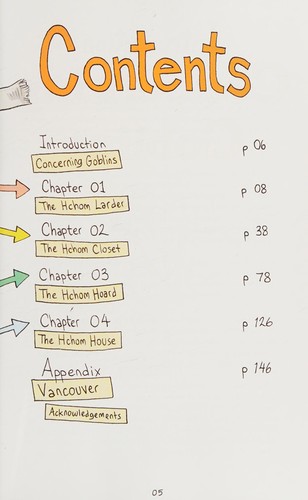 Contents
Introduction p 06
Concerning Goblins
Chapter 01 p 08
The Hchom Larder
Chapter 02 p 38
The Hchom Closet
Chapter 03 p 78
The Hchom Hoard
Chapter 04 p 126
The Hchom House
Appendix p 146
Vancouver
Acknowledgements
05